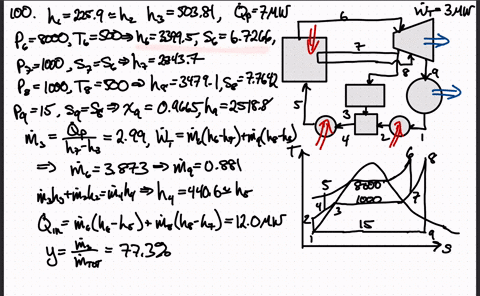 100. h₁ = 225.9 ≈ h₂ h₃ = 503.81, Q̇p = 7MW
P₆ = 8000, T₆ = 500 ⇒ h₆ = 3399.5, S₆ = 6.7266,
P₇ = 1000, S₇ = S₆ ⇒ h₇ = 2843.7
P₈ = 1000, T₈ = 500 ⇒ h₈ = 3479.1, S₈ = 7.7642
P₉ = 15, S₉ = S₈ ⇒ x₉ = 0.9665, h₉ = 2518.8
ṁ₃ = Q̇p / (h₇ - h₃) = 2.99, Ẇт = ṁ₆(h₆-h₇) + ṁ₉(h₈-h₉)
⇒ ṁ₆ = 3.873 ⇒ ṁ₉ = 0.881
ṁ₃h₃ + ṁ₂h₂ = ṁ₄h₄ ⇒ h₄ = 440.6 ≈ h₅
Q̇ᵢₙ = ṁ₆(h₆-h₅) + ṁ₈(h₈-h₇) = 12.0MW
y = ṁ₃ / ṁTOT = 77.3%
Ẇт = 3MW
6
7
8
9
5
3
4
2
1
T
6
8
5
8000
4
3
1000
7
2
15
1
9
S